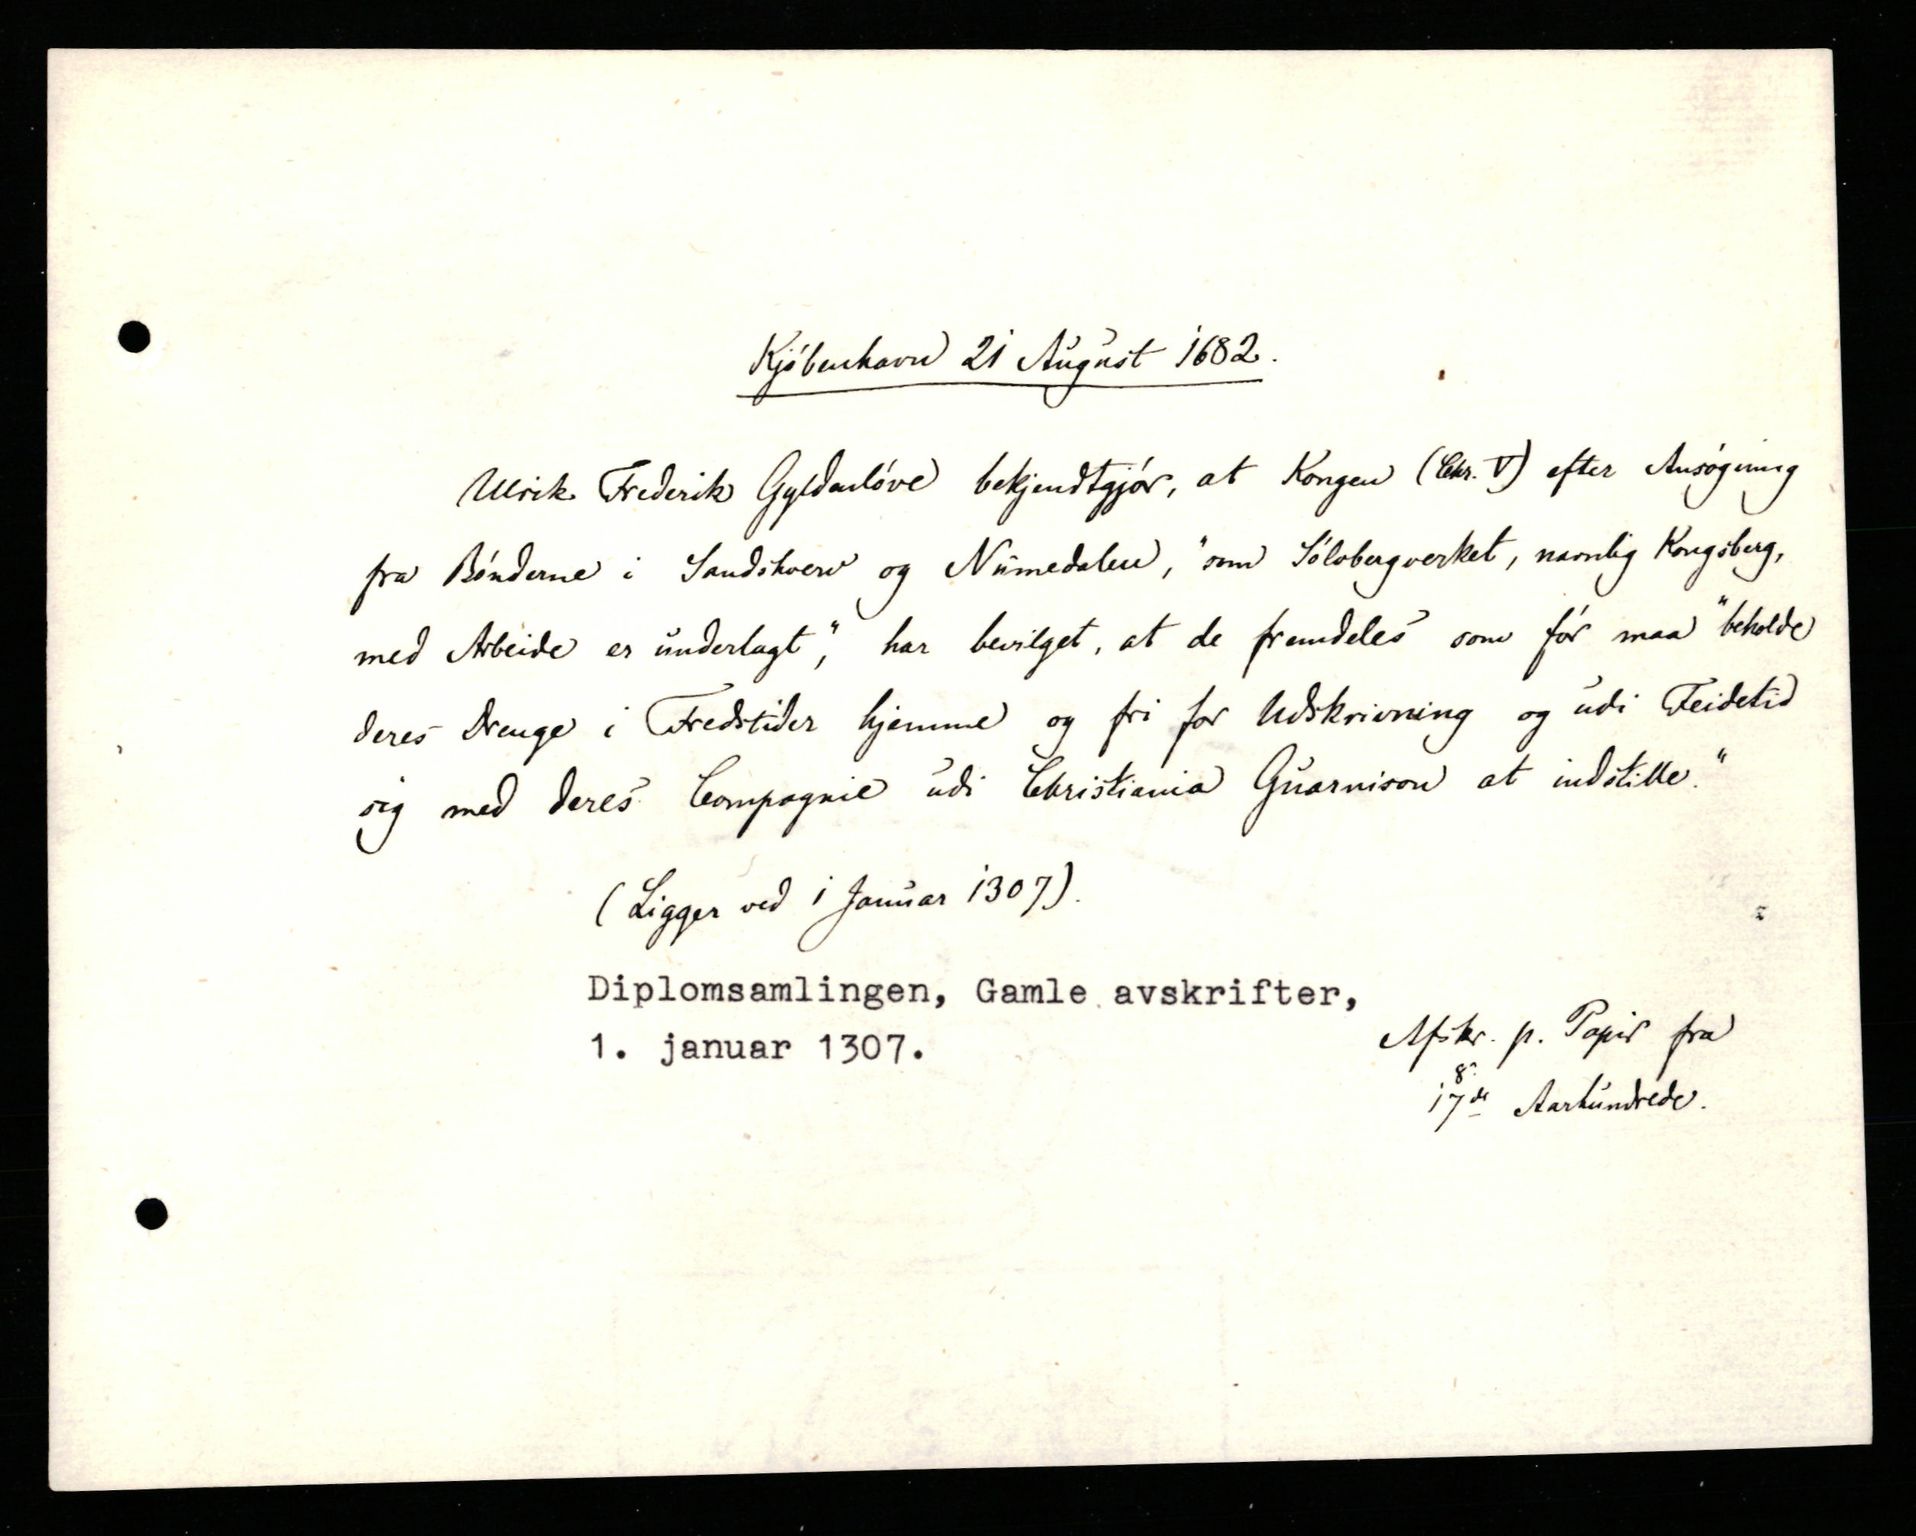 Kjóbenhavn 21 August 1682.
Ulrik Frederik Gyldenlóve bekjendtgjór, at Kongen (Chr. V) efter Ansógning
fra Bónderne i Sandshverv og Numedalen, "som Sólvbergverket, navnlig Kongsberg,
med Arbeide er underlagt", har bevilget, at de fremdeles som fór maa "beholde
deres Drenge i Fredstider hjemme og fri for Udskrivning og udi Feidetid
sig med deres Compagnie udi Christiania Guarnison at indstille."
(Ligger ved 1 Januar 1307).
Diplomsamlingen, Gamle avskrifter,
1. januar 1307.
Afskr. p. Papir fra
8.
17de Aarhundrede.